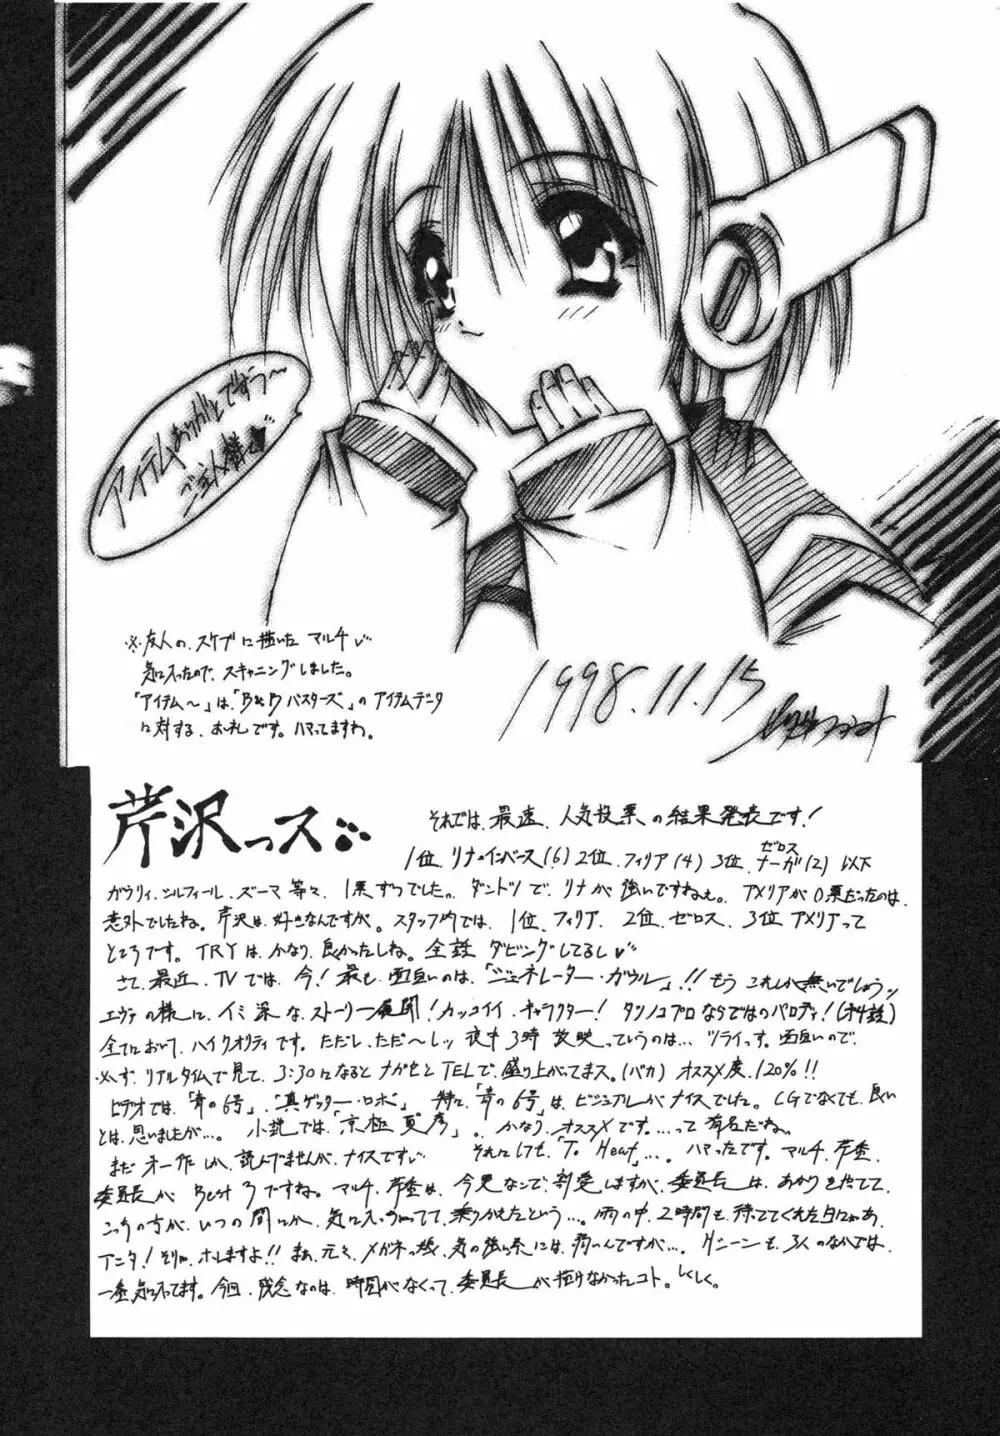 アイテムありがとですうー
ご主人様
※友人の、スケブに描いた マルチ
気に入ったので、スキャニングしました。
「アイテム〜」は、「B&Dバスターズ」の アイテムデータ
に対する、お礼です。ハマってますわ。
1998.11.15
芹沢っス
それでは、最速、人気投票の結果発表です！
1位、リナ=インバース(6) 2位、フィリア(4) 3位、ゼロス ナーガ(2) 以下
ガウリィ、シルフィール、ズーマ 等々、1票ずつでした。ダントツで、リナが、強いですねぇ。アメリアが0票だったのは、
意外でしたね。芹沢は、好きなんですが。スタッフ内では、1位、フィリア、2位、ゼロス、3位 アメリアって
ところです。TRYは、かなり、良かったしね。全話 ダビングしてるし
さて、最近、TVでは、今！最も、面白いのは、「ジェネレーター・ガウル」!! もう これしか無いでしょうッ
エヴァの様に、イミ深な、ストーリー展開！カッコイイ、キャラクター！タツノコプロならではのパロディ！(才4話)
全てにおいて、ハイクオリティです。ただし、ただ〜しッ 夜中3時 放映っていうのは… ツライっす。面白いので、
必ず、リアルタイムで見て、3:30になると ナガセとTELで、盛り上がってまス。(バカ) オススメ度、120%!!
ビデオでは、「青の6号」、「真ゲッター・ロボ」 特に、「青の6号」は、ビジュアルがナイスでした。CGでなくても、良い
とは、思いましたが…。小説では、「京極夏彦」。かなり、オススメです。…って 有名だね。
まだ 才一作しか、読んでませんが、ナイスです それにしても、「To Heat」…。ハマったです。マルチ、芹香、
委員長が Best 3ですね。マルチ、芹香は、今更なんで、割愛しますが、委員長は、あかりを立てて、
こっちの方が、いつの間にか、気に入っちゃってて、乗りかえたという…。雨の中、2時間も、待っててくれた日にゃあ、
アニタ！そりゃ、ホレますよ!! まあ、元々、メガネっ娘、気の強い系には、弱いんですが…。Hシーンも、3人のなかでは、
一番、気に入ってます。今回、残念なのは、時間がなくって、委員長が描けなかったコト。しくしく。